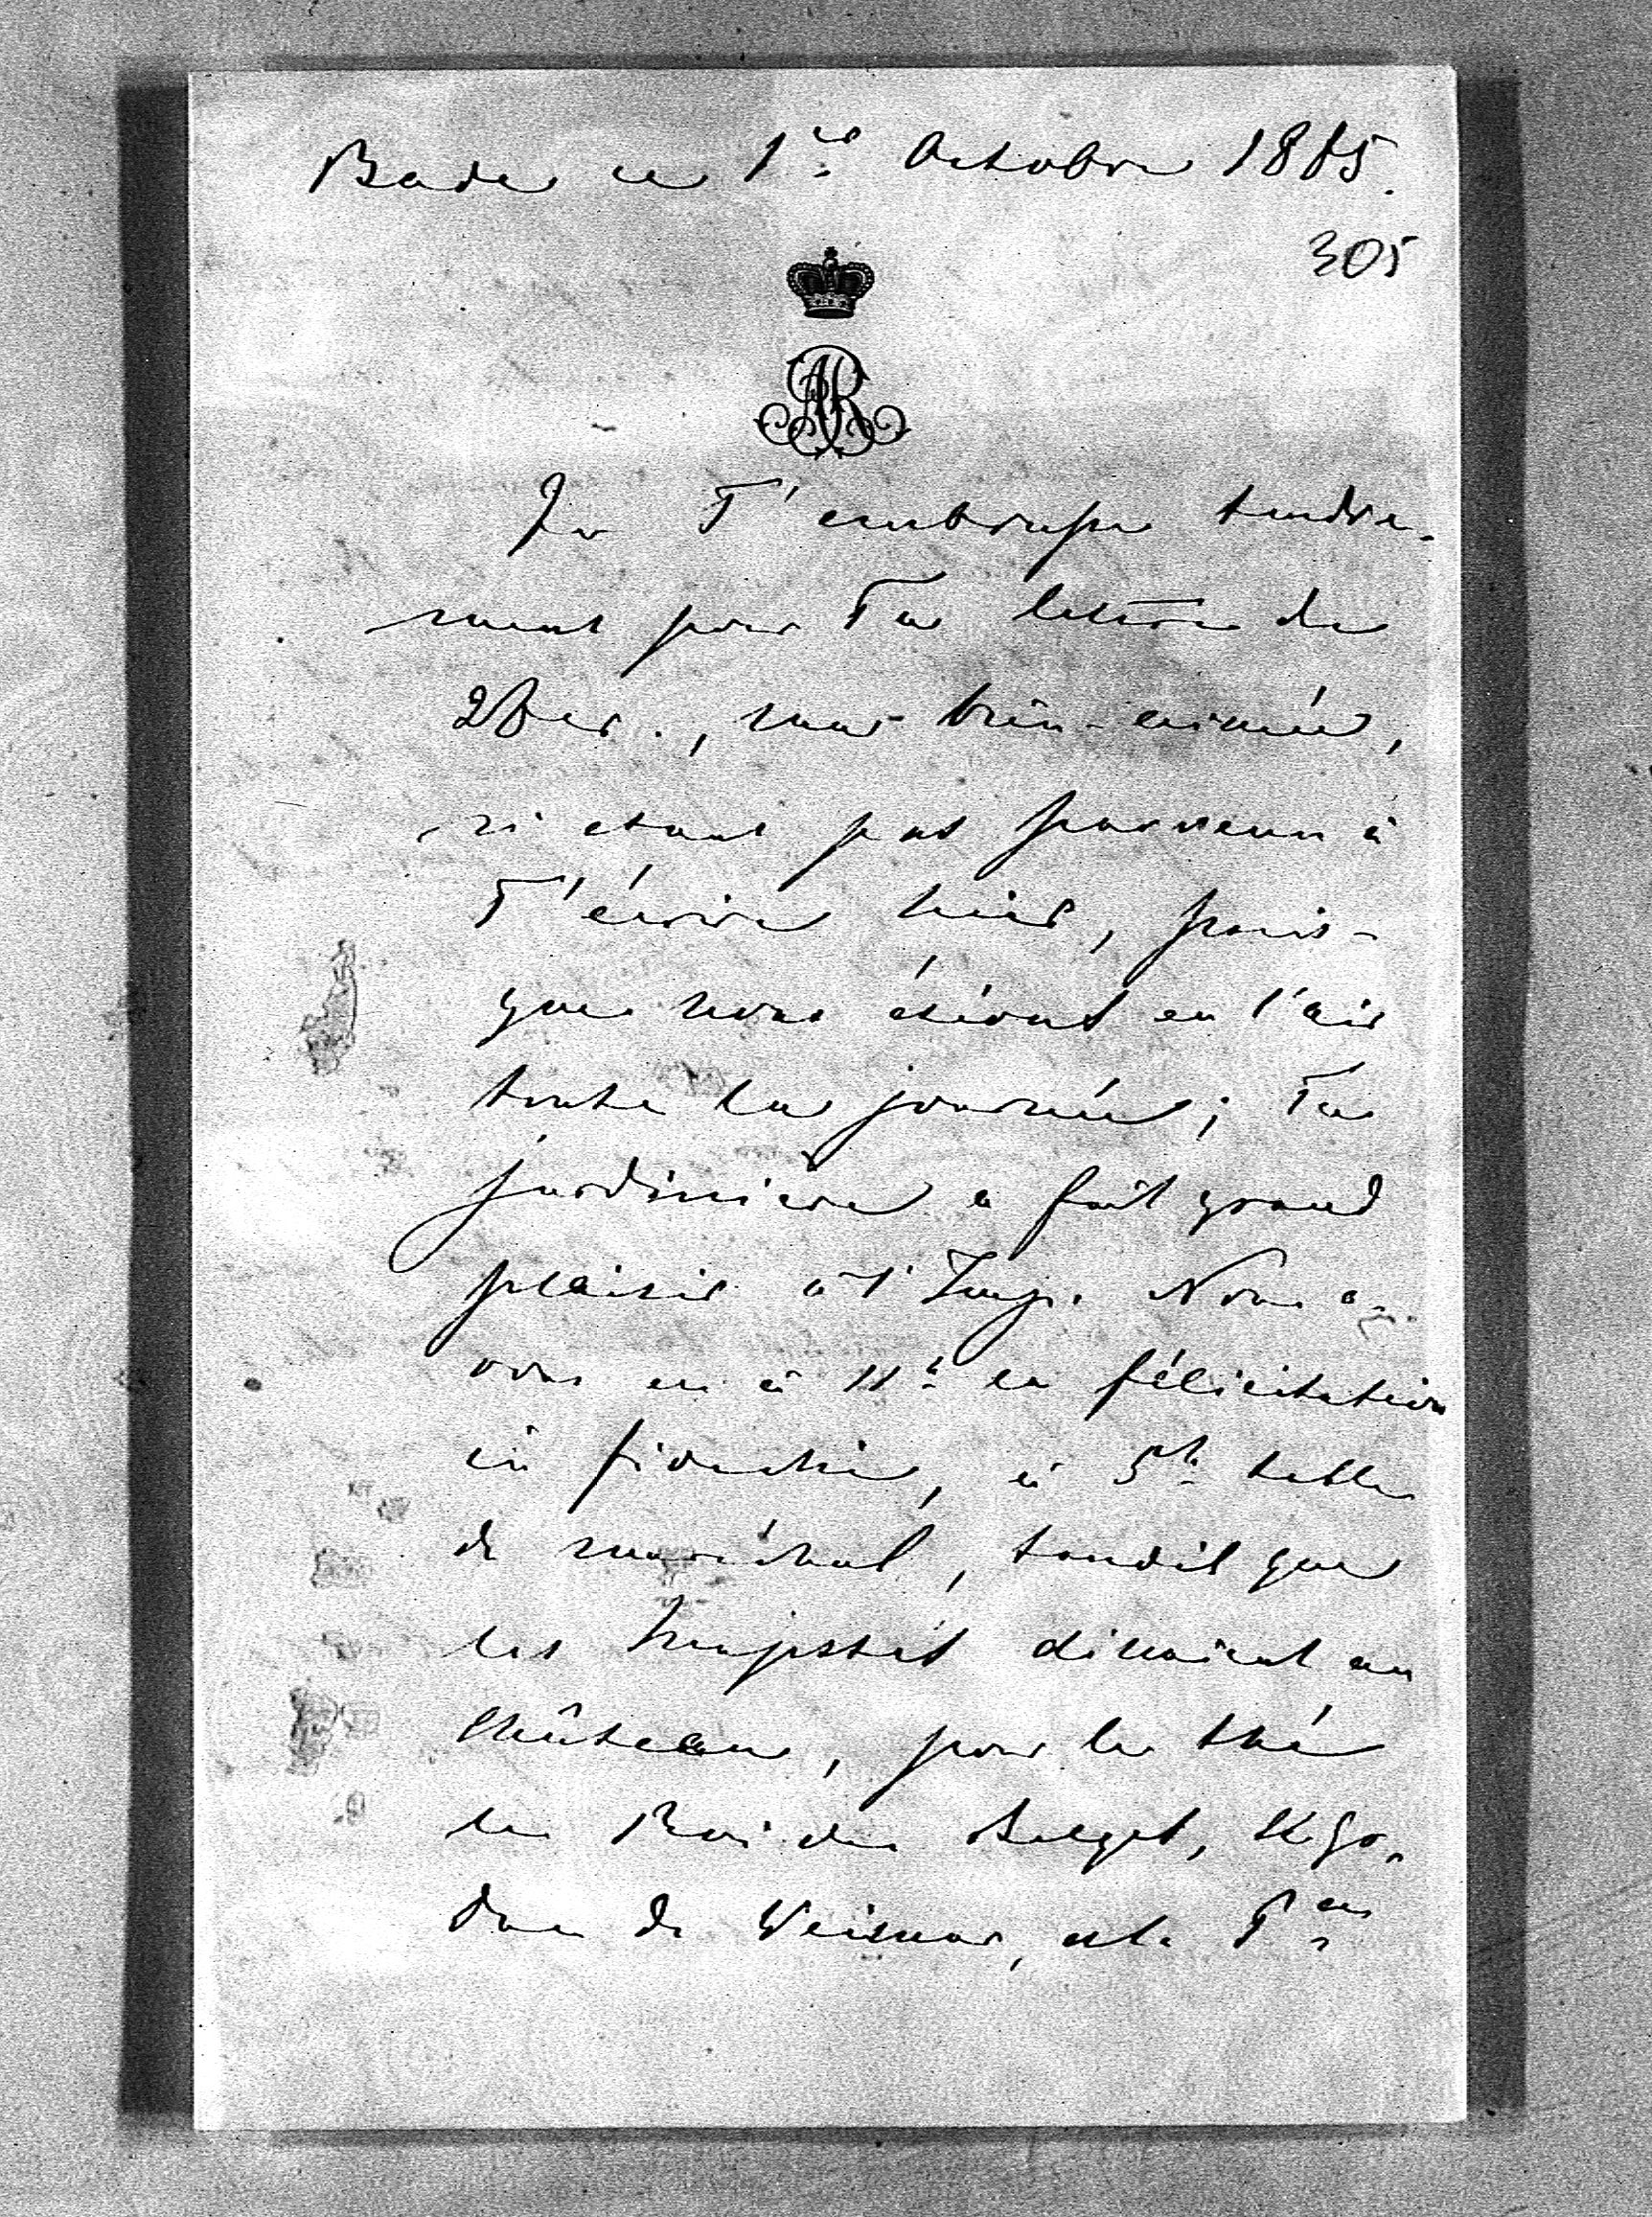 Bade ce 1er Octobre 1885.
305
AR
Je T'embrasse tendre-
ment pour Ta lettre du
28er., ma bien-aimée,
n'etant pas parvenu à
T'écrire hier, puis-
que nous étions en l'air
toute la journée; Ta
jardinière a fait grand
plaisir à l'Imp. Nous a-
vons eu à 11h la félicitation
in fiocchi, à 5h table
de maréchal, tandis que
les Majestés dinaient au
Château, pour le thé
le Roi des Belges, le Gr.
Duc de Weimar, et la Pce